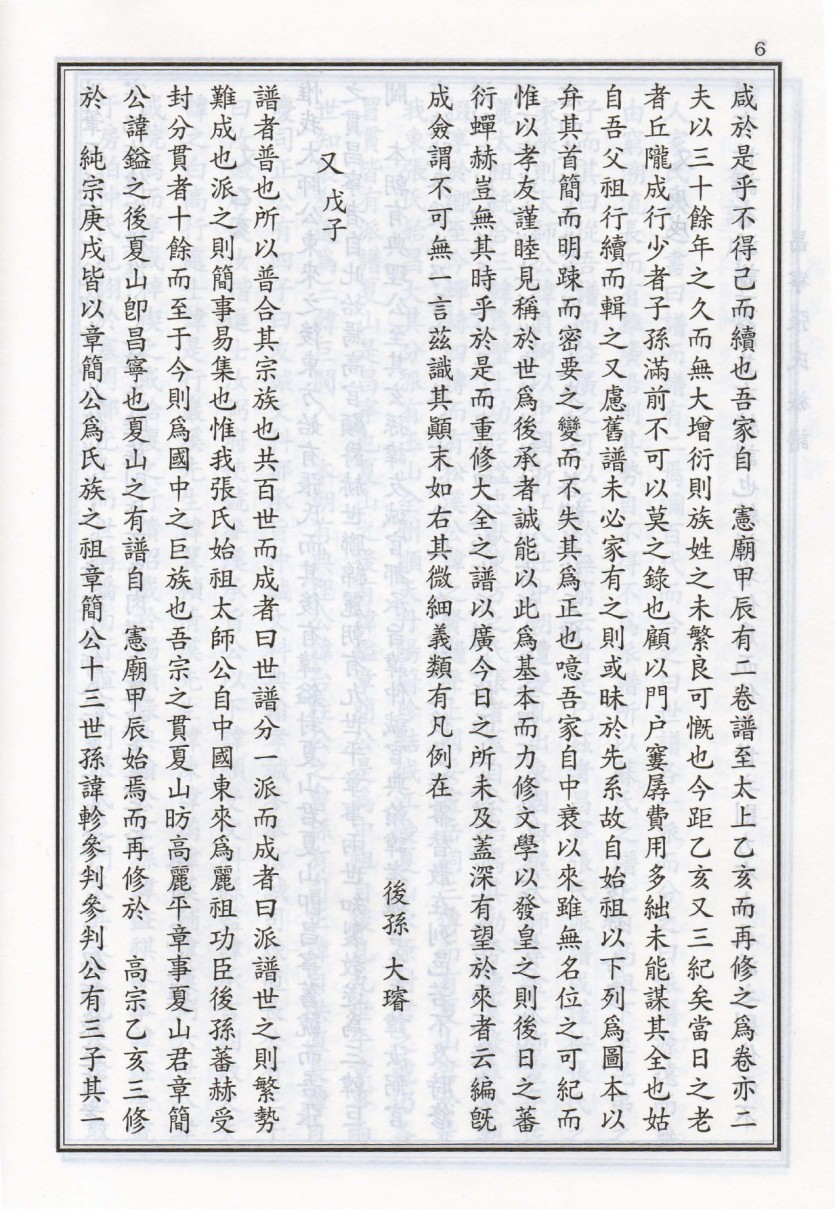 6
咸於是乎不得已而續也吾家自 憲廟甲辰有一卷譜至太上乙亥而再修之爲卷亦二
夫以三十餘年之久而無大增衍則族姓之未繁良可慨也今距乙亥又三紀矣當日之老
者丘隴成行少者子孫滿前不可以莫之錄也顧以門户窶孱費用多絀未能謀其全也姑
自吾父祖行續而輯之又慮舊譜未必家有之則或昧於先系故自始祖以下列爲圖本以
弁其首簡而明踈而密要之變而不失其爲正也噫吾家自中衰以來雖無名位之可紀而
惟以孝友謹睦見稱於世爲後承者誠能以此爲基本而力修文學以發皇之則後日之蕃
衍蟬赫豈無其時乎於是而重修大全之譜以廣今日之所未及蓋深有望於來者云編旣
成僉謂不可無一言玆識其顚末如右其微細義類有凡例在
後孫 大璿
又 戊子
譜者普也所以普合其宗族也共百世而成者曰世譜分一派而成者曰派譜世之則繁勢
難成也派之則簡事易集也惟我張氏始祖太師公自中國東來爲麗祖功臣後孫蕃赫受
封分貫者十餘而至于今則爲國中之巨族也吾宗之貫夏山昉高麗平章事夏山君章簡
公諱鎰之後夏山卽昌寧也夏山之有譜自 憲廟甲辰始焉而再修於 高宗乙亥三修
於 純宗庚戌皆以章簡公爲氏族之祖章簡公十三世孫諱軫參判參判公有三子其一